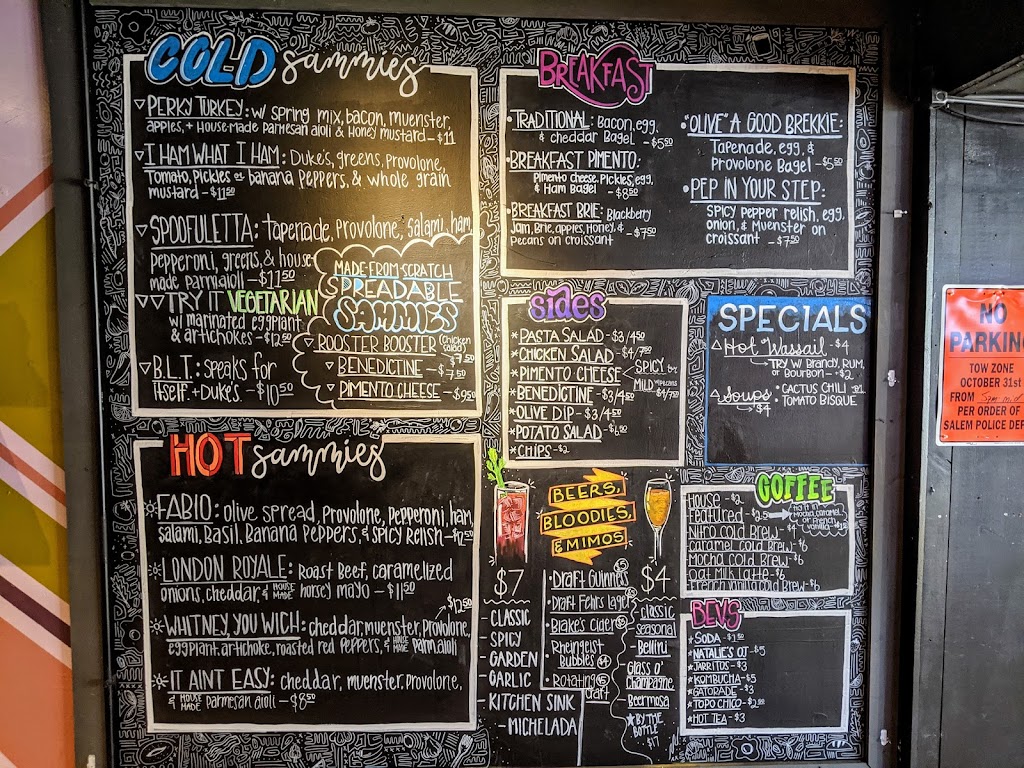 COLD sammies
▽PERKY TURKEY: w/ SPRING MIX, bacon, muenster,
apples, + House-made Parmesan aioli & Honey mustard - $11
▽I HAM WHAT I HAM: Duke's, greens, Provolone,
Tomato, Pickles or banana Peppers, & whole grain
mustard - $11.50
▽SPOOFULETTA: Tapenade, Provolone, salami, ham,
Pepperoni, greens, & house
made parm aioli - $11.50
▽▽TRY IT VEGETARIAN
w/ marinated eggplant
& artichokes - $12.50
▽B.L.T: speaks for
itself. + Duke's. - $10.50
MADE FROM SCRATCH
SPREADABLE
SAMMIES
▽ROOSTER BOOSTER (chicken salad) $7.50
▽BENEDICTINE - $7.50
▽PIMENTO CHEESE - $9.50
HOT sammies
FABIO: olive spread, Provolone, Pepperoni, ham,
salami, Basil, Banana Peppers, & spicy Relish -
LONDON ROYALE: Roast Beef, caramelized
onions, cheddar, & HOUSE MADE horsey mayo - $11.50
$12.50
WHITNEY, YOU WICH: cheddar, muenster, Provolone,
eggplant, artichoke, roasted red peppers, & HOUSE MADE Parm aioli
IT AINT EASY: cheddar, muenster, Provolone,
& HOUSE MADE Parmesan aioli - $8.50
BREAKFAST
•TRADITIONAL: Bacon, egg,
& cheddar Bagel - $5.50
•BREAKFAST PIMENTO:
Pimento cheese, Pickles, egg,
& Ham Bagel - $8.50
•BREAKFAST BRIE: Blackberry
Jam, Brie, apples, Honey, &
Pecans on croissant - $7.50
•"OLIVE" A GOOD BREKKIE:
Tapenade, egg, &
Provolone Bagel - $5.50
•PEP IN YOUR STEP:
SPICY pepper relish, egg,
onion, & Muenster on
croissant - $7.50
sides
*PASTA SALAD - $3/4.50
*CHICKEN SALAD - $4/7.50
*PIMENTO CHEESE SPICY
MILD
*BENEDICTINE - $3/4.50
*OLIVE DIP - $3/4.50
*POTATO SALAD - $6.50
*CHIPS - $2
SPECIALS
△Hot Wassail - $4
TRY w/ Brandy, RUM,
or Bourbon - $2
△Soups • CACTUS CHILI
$4 • TOMATO BISQUE
BEERS,
BLOODIES,
& MIMOS
$7
- CLASSIC
- SPICY
- GARDEN
- GARLIC
- KITCHEN SINK
- MICHELADA
• Draft Guinness
• Draft Fehrs Lager
• Blake's Cider
• Rheingeist
Bubbles
• Rotating
Draft
$4
classic
seasonal
Bellini
Glass o'
Champagne
Beermosa
★BY THE
BOTTLE
$17
COFFEE
House - $2
Featured - $2.50
Try it in Mocha, caramel, or French vanilla
Nitro cold Brew - $4
caramel cold Brew - $6
Mocha cold Brew - $6
Oat Milk Latte - $6
French vanilla cold Brew - $6
BEVS
★SODA - $1.50
★NATALIE'S OJ - $5
★JARRITOS - $3
★KOMBUCHA - $5
★GATORADE - $3
★TOPO CHICO -
★HOT TEA - $3
NO
PARKIN
TOW ZONE
OCTOBER 31st
FROM
PER ORDER OF
SALEM POLICE DEP